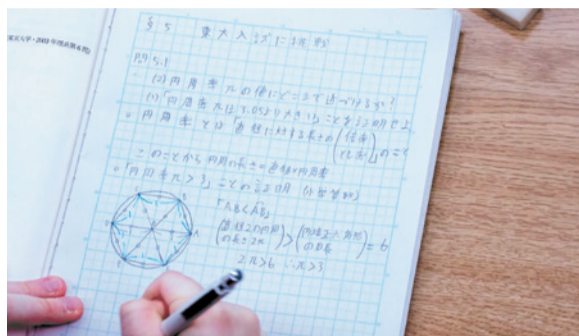 東京大学・2003年 理系第6問
§5 東大入試に挑戦
問5.1
(2) 円周率πの値にどこまで近づけるか?
(1)「円周率πは3.05より大きい」ことを証明せよ
円周率とは「直径に対する長さの(倍率 比率)」のこと
このことから 円周の長さ=直径×円周率
「円周率π>3」ことの証明
「AB<AB」
(直径2の円周の長さ=2π)>( )=6
2π>6 ∴π>3